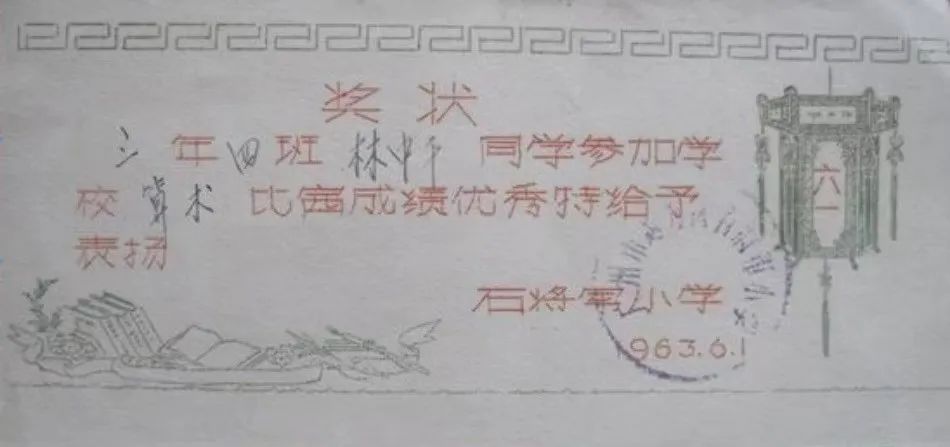 奖状
三年四班林中干同学参加学
校算术比赛成绩优秀特给予
表扬
六一
石将军小学
1963.6.1